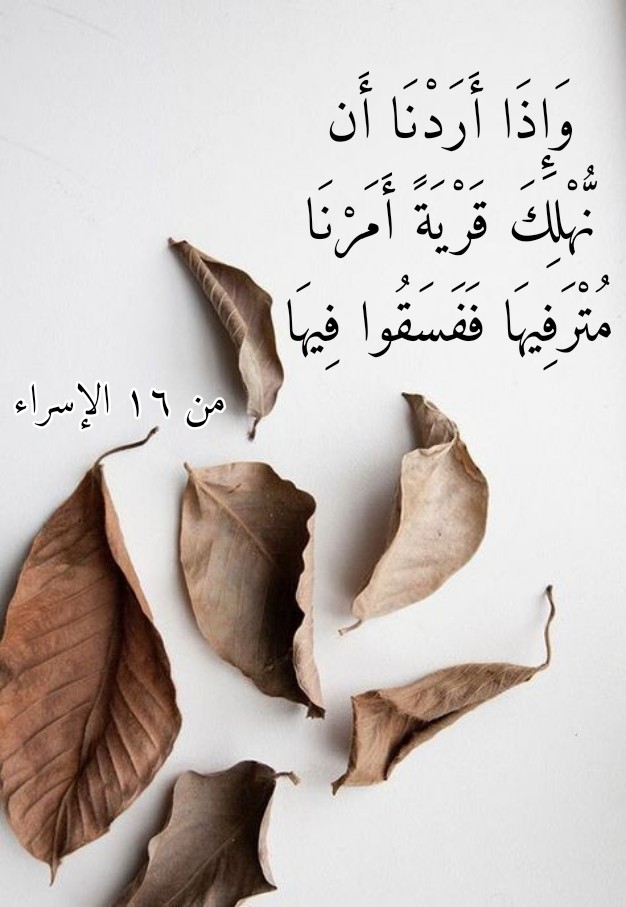 وَإِذَا أَرَدْنَا أَن
نُّهْلِكَ قَرْيَةً أَمَرْنَا
مُتْرَفِيهَا فَفَسَقُوا فِيهَا
من ١٦ الإسراء